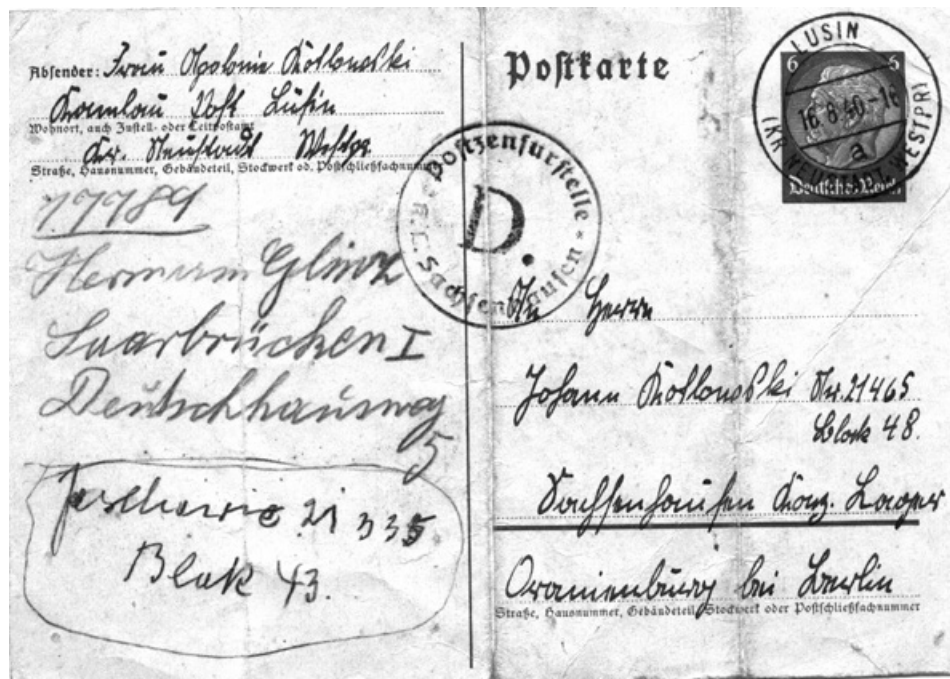 Absender: Frau Apolonie Kotlowski
Post Lusin
Wohnort, auch Zustell- oder Leitpostamt
Kr. Neustadt Westpr.
Straße, Hausnummer, Gebäudeteil, Stockwerk od. Postschließfachnummer
Hermann
Saarbrücken I
Deutschhausweg
5
21 335
Blok 43.
Postzensurstelle
D.
K.L. Sachsenhausen
Postkarte
LUSIN
16.8.40-16
a
(KR NEUSTADT WESTPR)
6 6
Deutsches Reich
An Herrn
Johann Kotlowski Nr. 21465
Block 48.
Sachsenhausen Konz. Lager
Oranienburg bei Berlin
Straße, Hausnummer, Gebäudeteil, Stockwerk oder Postschließfachnummer